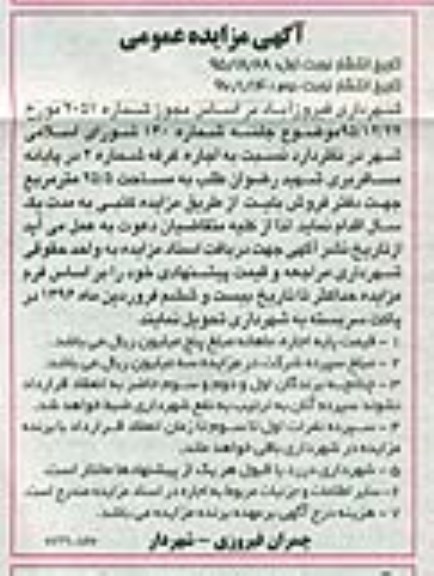 آگهی مزایده عمومی
تاریخ انتشار نوبت اول:
تاریخ انتشار نوبت دوم:
شهرداری فیروزآباد بر اساس مجوز شماره ۲۰۵۱ مورخ
موضوع جلسه شماره ۱۳۰ شورای اسلامی
شهر در نظر دارد نسبت به اجاره غرفه شماره ۲ در پایانه
مسافربری شهید رضوان طلب به مساحت ۲۵/۵ مترمربع
جهت دفتر فروش بلیت از طریق مزایده کتبی به مدت یک
سال اقدام نماید لذا از کلیه متقاضیان دعوت به عمل می آید
از تاریخ نشر آگهی جهت دریافت اسناد مزایده به واحد حقوقی
شهرداری مراجعه و قیمت پیشنهادی خود را بر اساس فرم
مزایده حداکثر تا تاریخ بیست و ششم فروردین ماه ۱۳۹۶ در
پاکت سربسته به شهرداری تحویل نمایند
۱ - قیمت پایه اجاره ماهانه مبلغ پنج میلیون ریال می باشد.
۲ - مبلغ سپرده شرکت در مزایده سه میلیون ریال می باشد.
۳ - چنانچه برندگان اول و دوم و سوم حاضر به انعقاد قرارداد
نشوند سپرده آنان به ترتیب به نفع شهرداری ضبط خواهد شد.
۴ - سپرده نفرات اول تا سوم تا زمان انعقاد قرارداد با برنده
مزایده در شهرداری باقی خواهد ماند.
۵ - شهرداری در رد یا قبول هر یک از پیشنهادها مختار است.
۶ - سایر اطلاعات و جزئیات مربوط به اجاره در اسناد مزایده مندرج است.
۷ - هزینه درج آگهی بر عهده برنده مزایده می باشد.
چمران فیروزی - شهردار